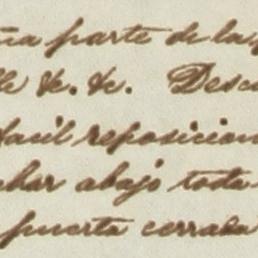 parte de la
&c. &c. Desc
facil reposicion
char abajo toda
puerta cerrada